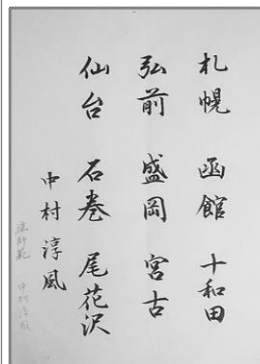 札幌 函館 十和田
弘前 盛岡 宮古
仙台 石巻 尾花沢
中村淳風